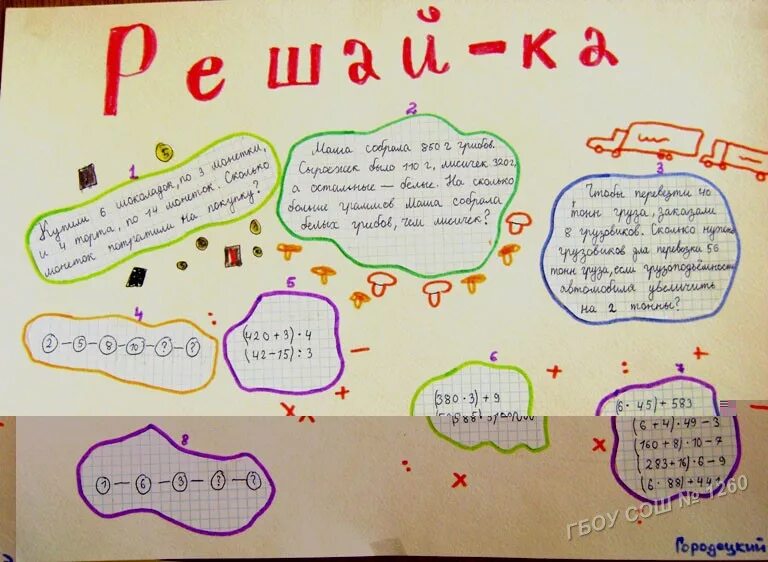 Решай-ка
1
Купили 6 шоколадок, по 3 монетки,
и 4 торта, по 14 монеток. Сколько
монеток потратили на покупку?
5
2
Маша собрала 850 г грибов.
Сыроежек было 110 г, лисичек 320 г,
а остальные — белые. На сколько
больше граммов Маша собрала
белых грибов, чем лисичек?
3
Чтобы перевезти 40
тонн груза, заказали
8 грузовиков. Сколько
грузовиков для перевозки 56
тонн груза, если грузоподъёмность
автомобиля увеличить
на 2 тонны?
4
2 — 5 — 8 — 10 — ? — ?
5
(420 + 3) · 4
(42 - 15) : 3
6
(380 · 3) + 9
7
(6 · 45) + 583
(6 + 4) · 49 - 3
(160 + 8) · 10 - 7
(283 + 16) · 6 - 9
(6 · 88) + 444
8
1 — 6 — 3 — ? — ?
ГБОУ СОШ № 1260
Городецкий